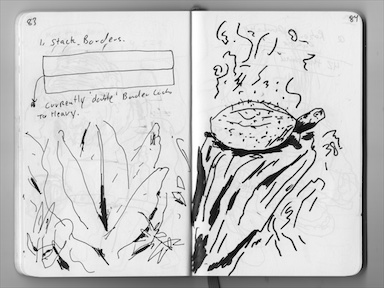 83
1. Stack, Borders.
Currently 'double' Border Looks
Too Heavy.
84